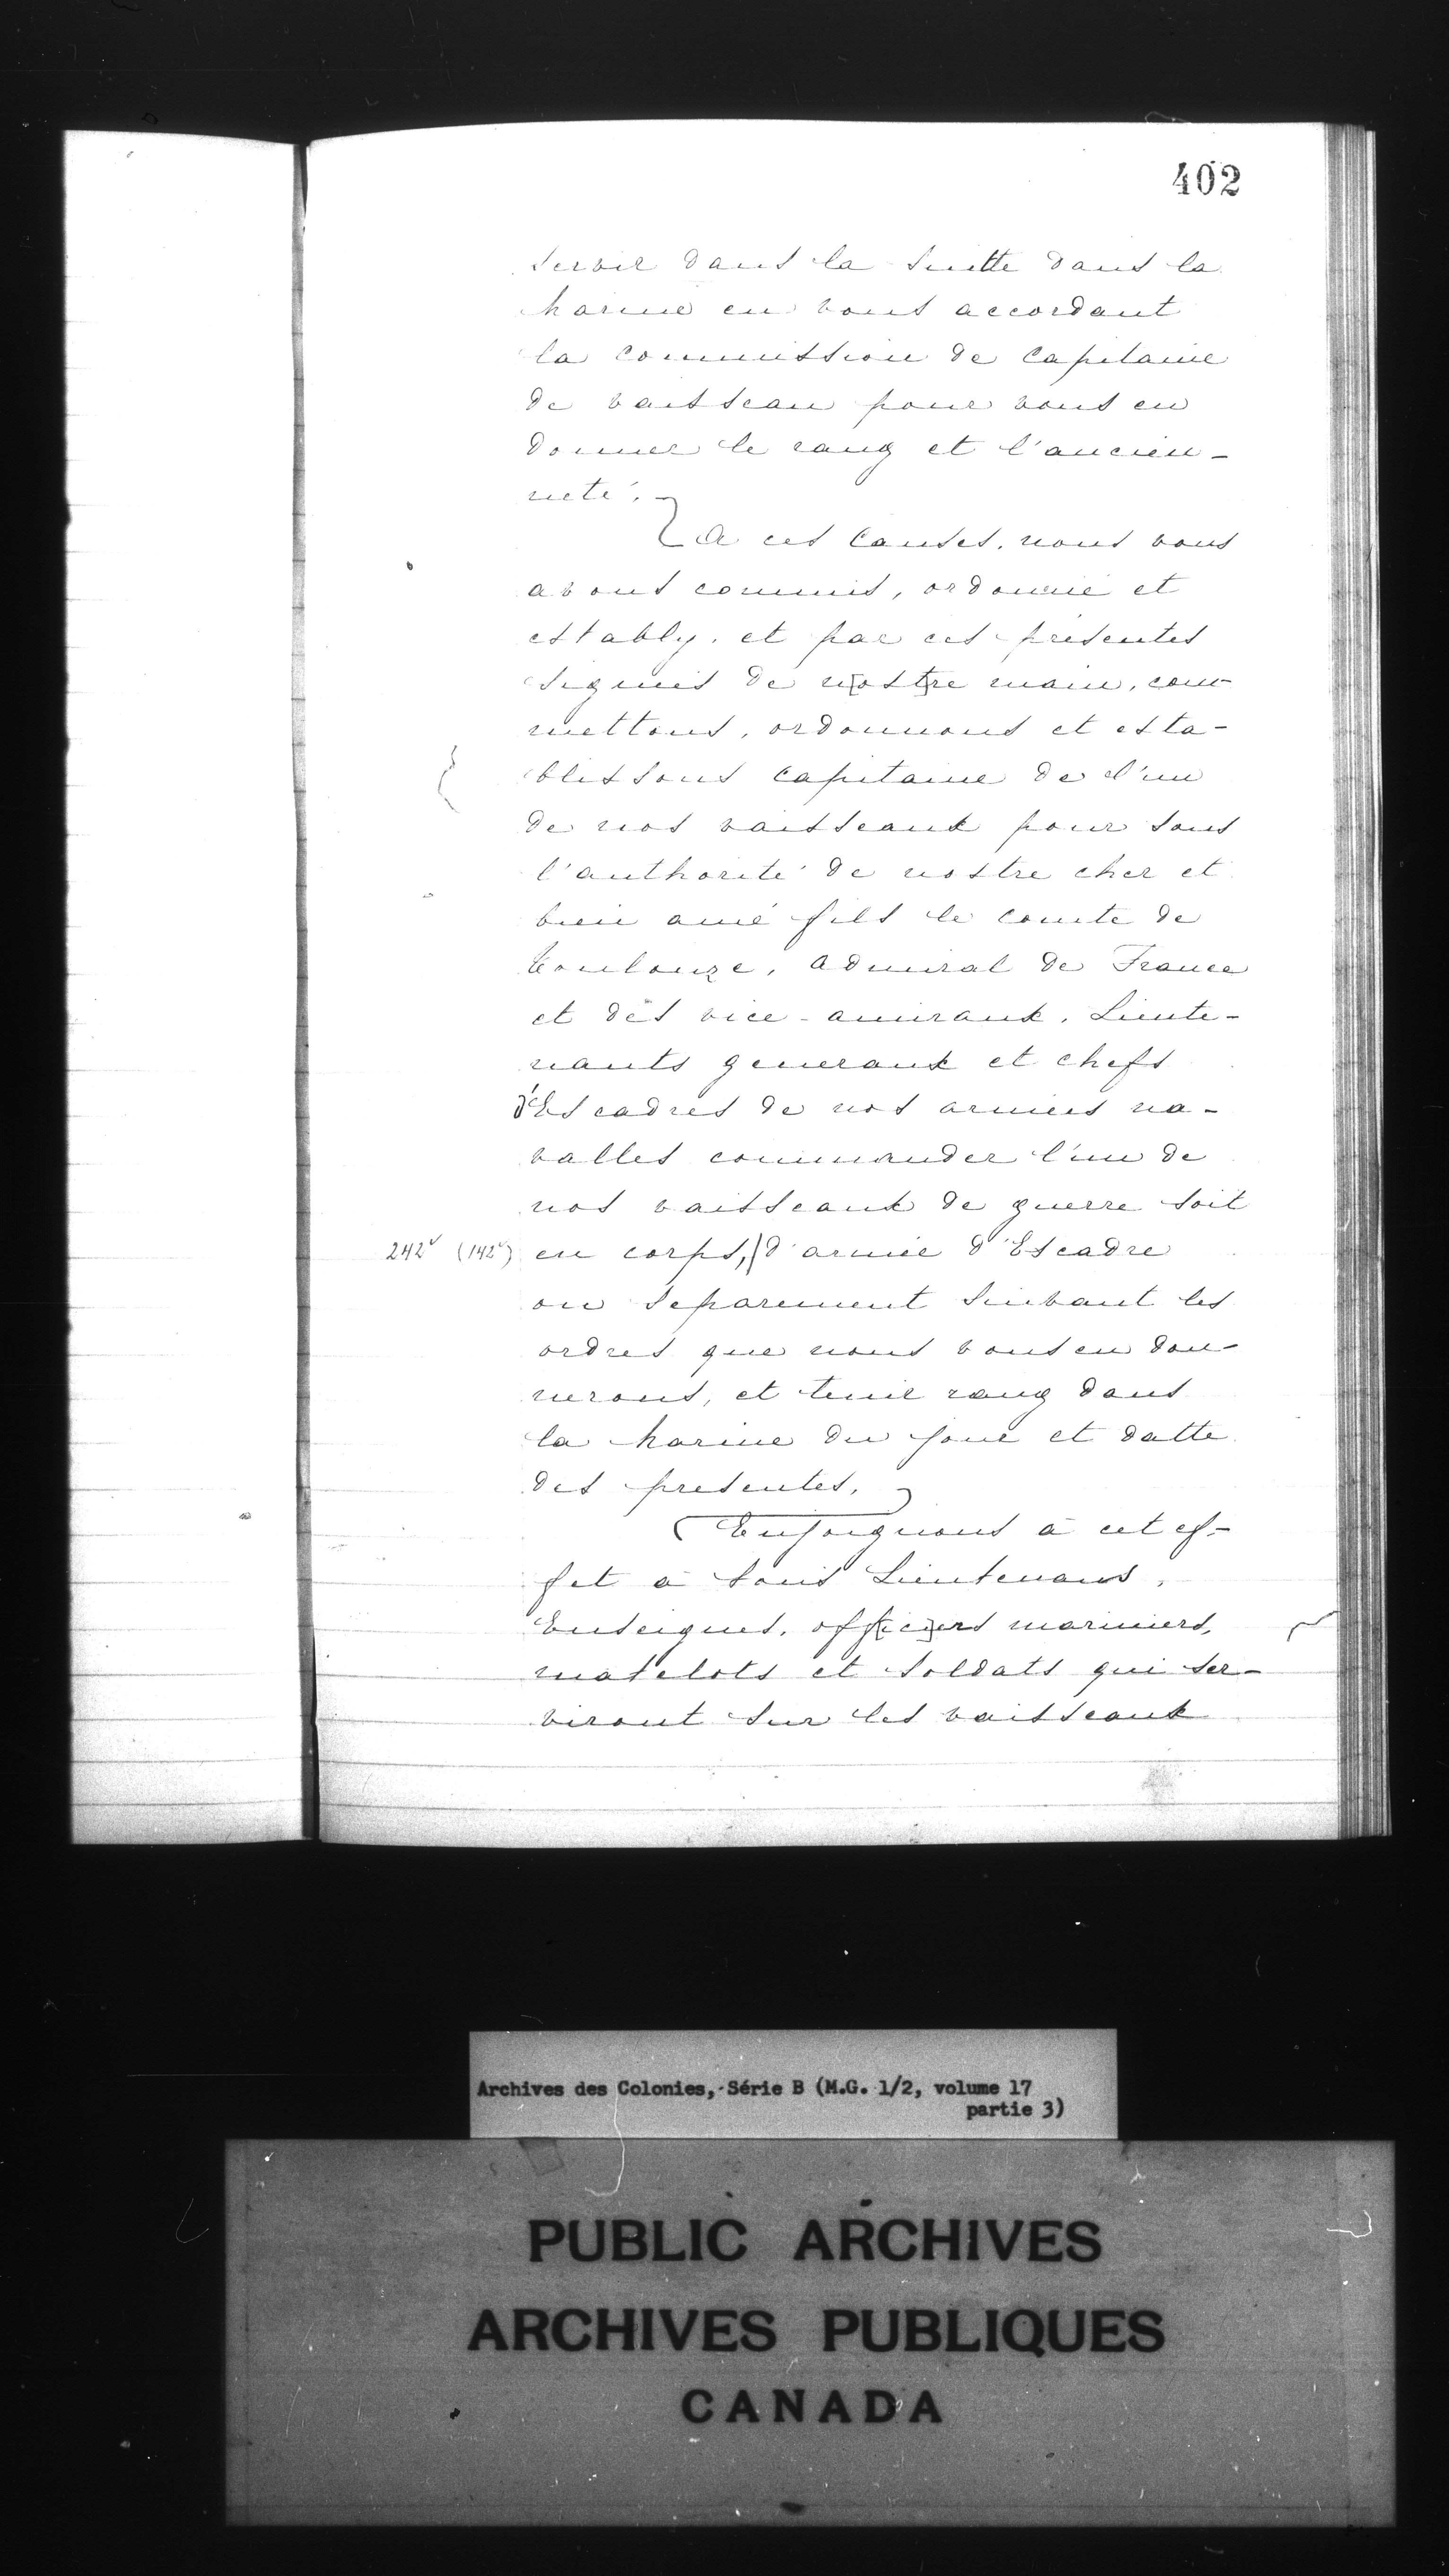 402
servir dans la suitte dans la
Marine en vous accordant
la commission de Capitaine
de vaisseau pour vous en
donner le rang et l'ancien-
neté.
A ces Causes, nous vous
avons commis, ordonné et
estably, et par ces présentes
signées de n[ost]re main, com-
mettons, ordonnons et esta-
blissons Capitaine de l'un
de nos vaisseaux pour sous
l'authorité de nostre cher et
bien amé fils le comte de
Toulouze, Admiral de France
et des vice-amiraux, Lieute-
nants generaux et chefs
d'Escadres de nos armées na-
valles commander l'un de
nos vaisseaux de guerre soit
242v (142v) en corps, | d'armée d'Escadre
ou separement suivant les
ordres que nous vous en don-
nerons, et tenir rang dans
la Marine du jour et datte
des presentes.
Enjoignons à cet ef-
fet à tous Lieutenans,
Enseignes, off[ici]ers mariniers,
matelots et soldats qui ser-
viront sur les vaisseaux
Archives des Colonies, Série B (M.G. 1/2, volume 17
partie 3)
PUBLIC ARCHIVES
ARCHIVES PUBLIQUES
CANADA